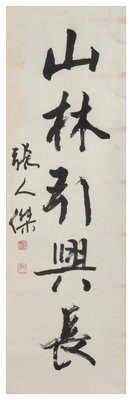 山林引興長
張人傑